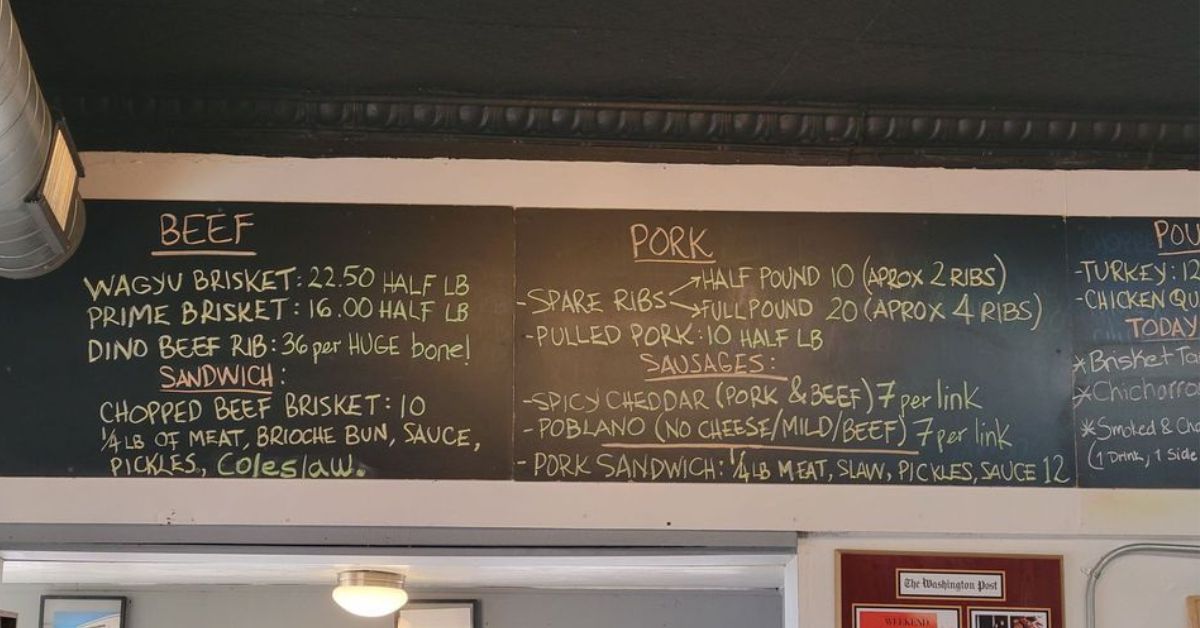 BEEF
WAGYU BRISKET: 22.50 HALF LB
PRIME BRISKET: 16.00 HALF LB
DINO BEEF RIB: 36 per HUGE bone!
SANDWICH:
CHOPPED BEEF BRISKET: 10
1/4 LB OF MEAT, BRIOCHE BUN, SAUCE,
PICKLES, Coleslaw.
PORK
-SPARE RIBS
HALF POUND 10 (APROX 2 RIBS)
FULL POUND 20 (APROX 4 RIBS)
-PULLED PORK: 10 HALF LB
SAUSAGES:
-SPICY CHEDDAR (PORK & BEEF) 7 per link
-POBLANO (NO CHEESE/MILD/BEEF) 7 per link
-PORK SANDWICH: 1/4 LB MEAT, SLAW, PICKLES, SAUCE 12
-TURKEY: 12
-CHICKEN
TODAY
*Brisket
*Smoked &
(1 Drink, 1 Side
The Washington Post
WEEKEND